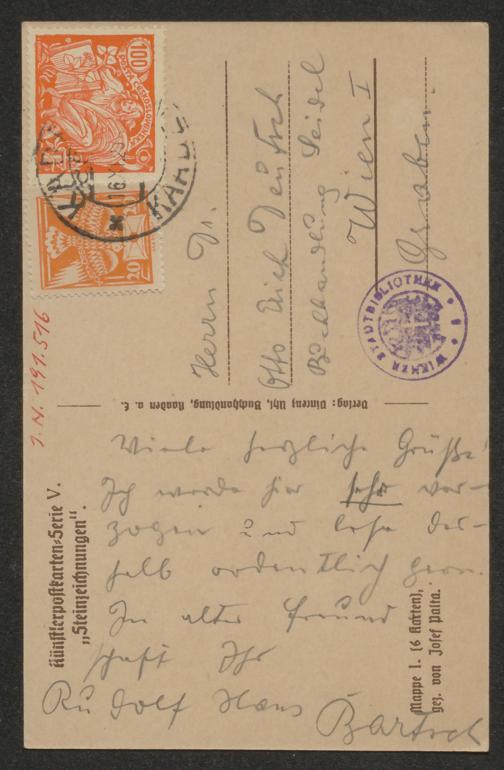 100
POŠTA ČESKOSLOVENSKÁ
20
KADAŇ
Herrn Dr.
Otto Erich Deutsch
Buchhandlung Seidel
Wien I
Graben.
WIENER STADTBIBLIOTHEK
J.N. 191.516
Verlag: Vinzenz Uhl, Buchhandlung, Kaaden a. E.
Künstlerpostkarten-Serie V.
„Steinzeichnungen".
Mappe 1. (6 Karten),
gez. von Josef Palta.
Viele herzliche Grüße!
Ich werde hier sehr ver-
zogen und lese des-
halb ordentlich gern.
In alter Freund
schaft Ihr
Rudolf Hans Bartsch